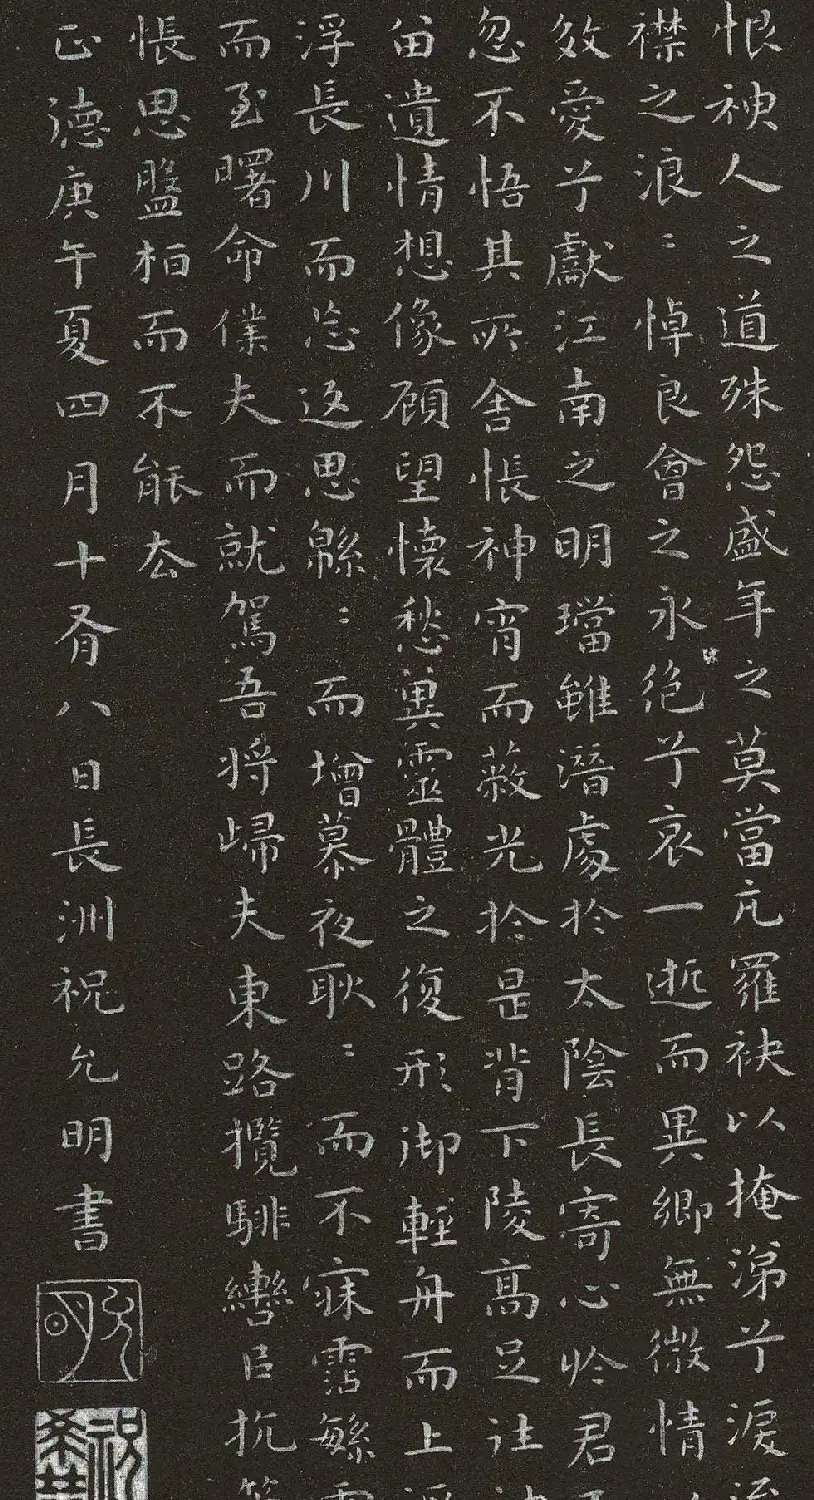 恨神人之道殊怨盛年之莫當亢羅袂以掩涕兮淚流
襟之浪〻悼良會之永絶兮哀一逝而異鄉無微情
效愛兮獻江南之明璫雖潛處於太陰長寄心於君
忽不悟其所舍悵神宵而蔽光於是背下陵高足往
留遺情想像顧望懷愁冀靈體之復形御輕舟而上
浮長川而忘返思緜〻而增慕夜耿〻而不寐霑繁
而至曙命僕夫而就駕吾將歸夫東路攬騑轡㠯抗策
悵思盤桓而不能去
正德庚午夏四月十有八日長洲祝允明書
允明